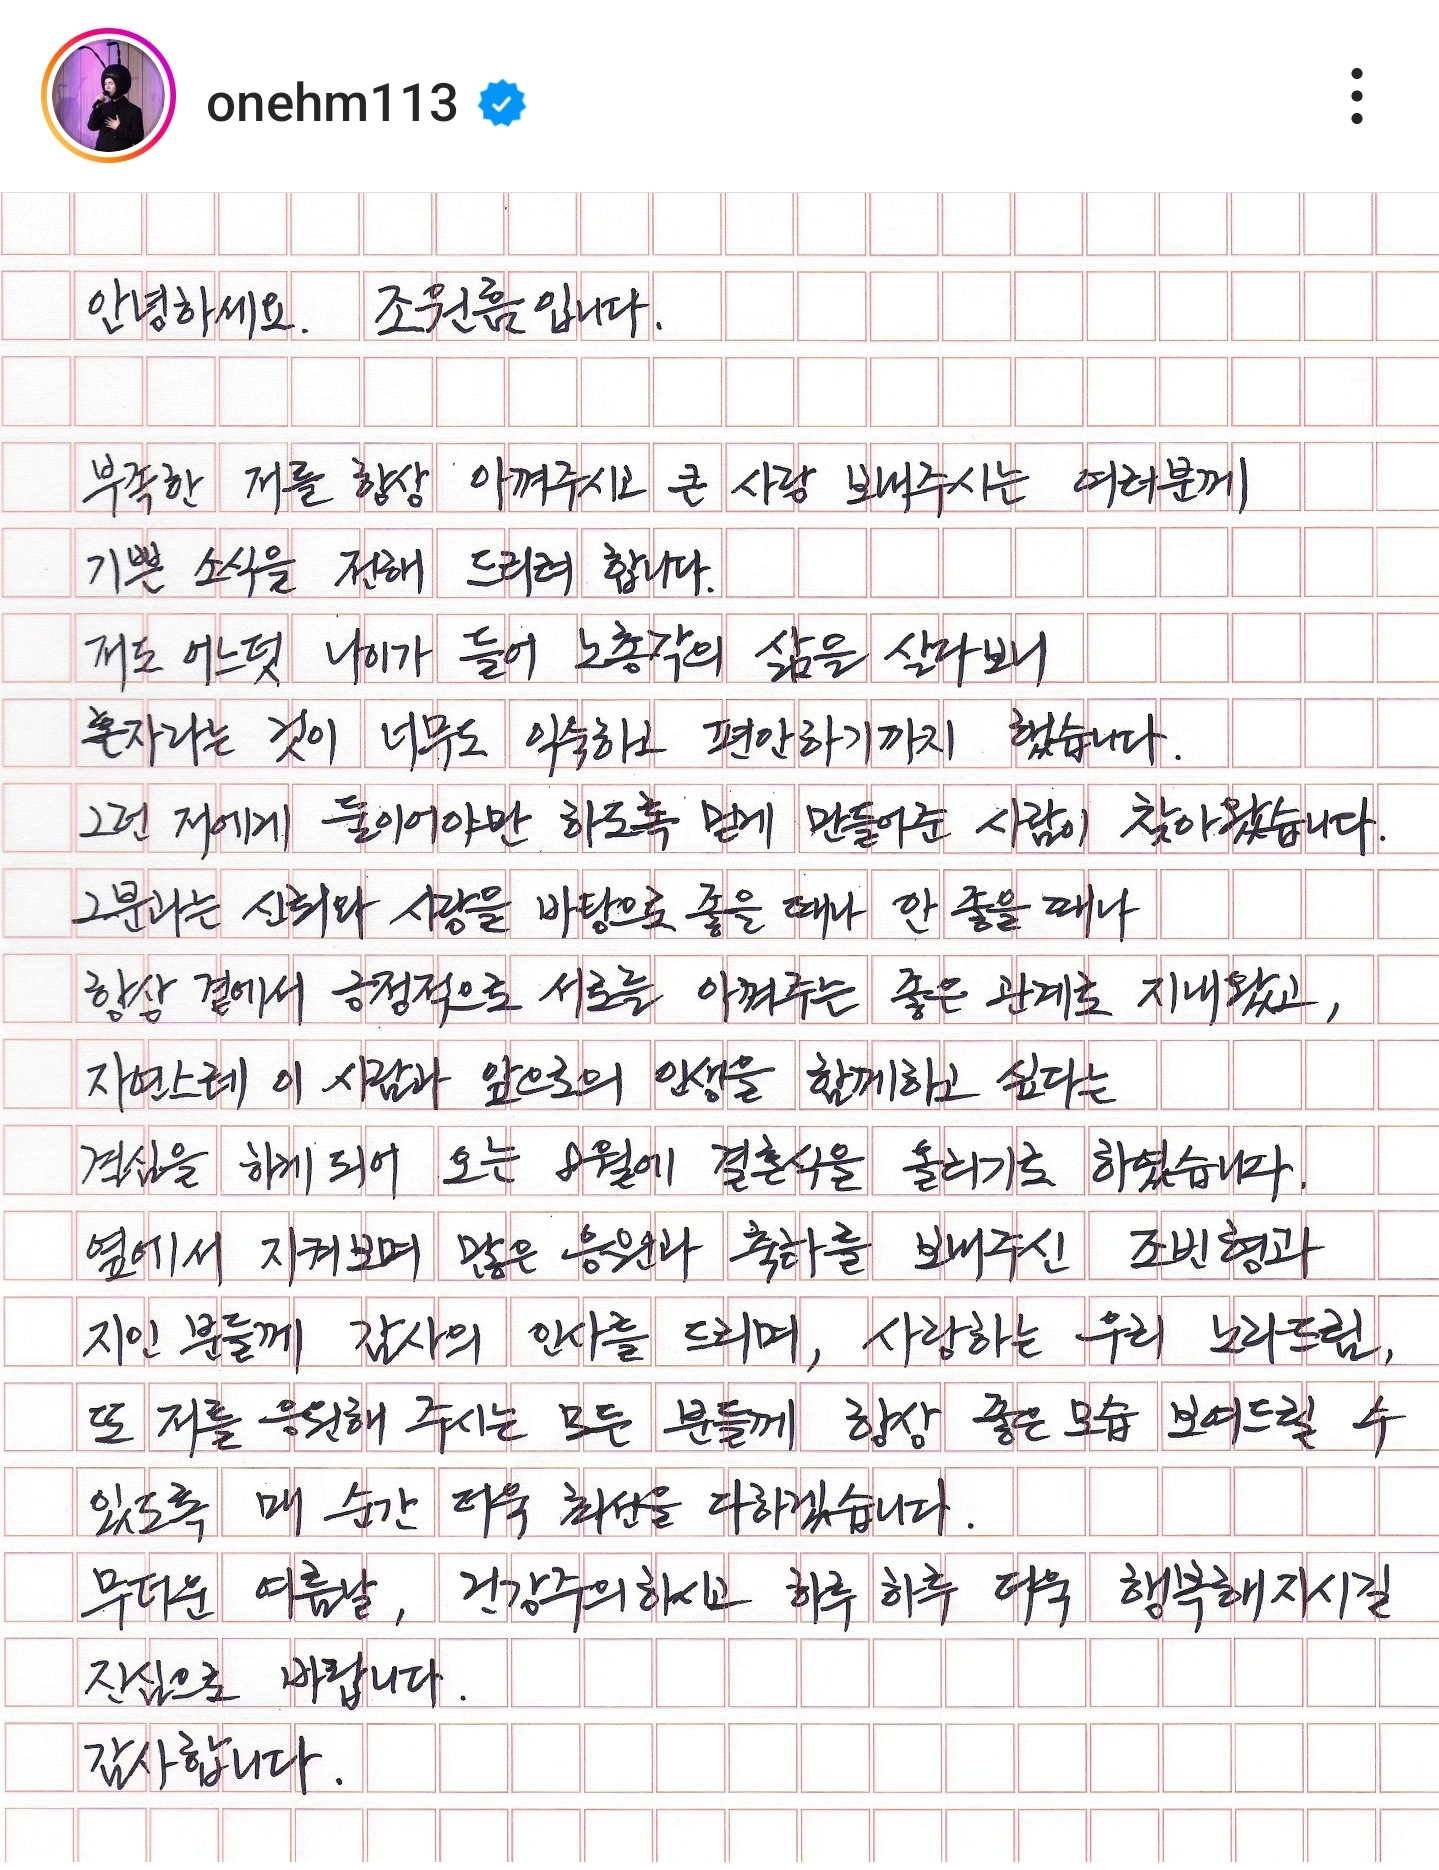 onehm113
안녕하세요. 조원흠입니다.
부족한 저를 항상 아껴주시고 큰 사랑 보내주시는 여러분께
기쁜 소식을 전해 드리려 합니다.
저도 어느덧 나이가 들어 노총각의 삶을 살다보니
혼자라는 것이 너무도 익숙하고 편안하기까지 했습니다.
그런 저에게 둘이어야만 하도록 믿게 만들어준 사람이 찾아왔습니다.
그분과는 신뢰와 사랑을 바탕으로 좋을 때나 안 좋을 때나
항상 곁에서 긍정적으로 서로를 아껴주는 좋은 관계로 지내왔고,
자연스레 이 사람과 앞으로의 인생을 함께하고 싶다는
결심을 하게 되어 오는 8월에 결혼식을 올리기로 하였습니다.
옆에서 지켜보며 많은 응원과 축하를 보내주신 조빈형과
지인 분들께 감사의 인사를 드리며, 사랑하는 우리 노라드림,
또 저를 응원해 주시는 모든 분들께 항상 좋은 모습 보여드릴 수
있도록 매 순간 더욱 최선을 다하겠습니다.
무더운 여름날, 건강주의하시고 하루 하루 더욱 행복해지시길
진심으로 바랍니다.
감사합니다.